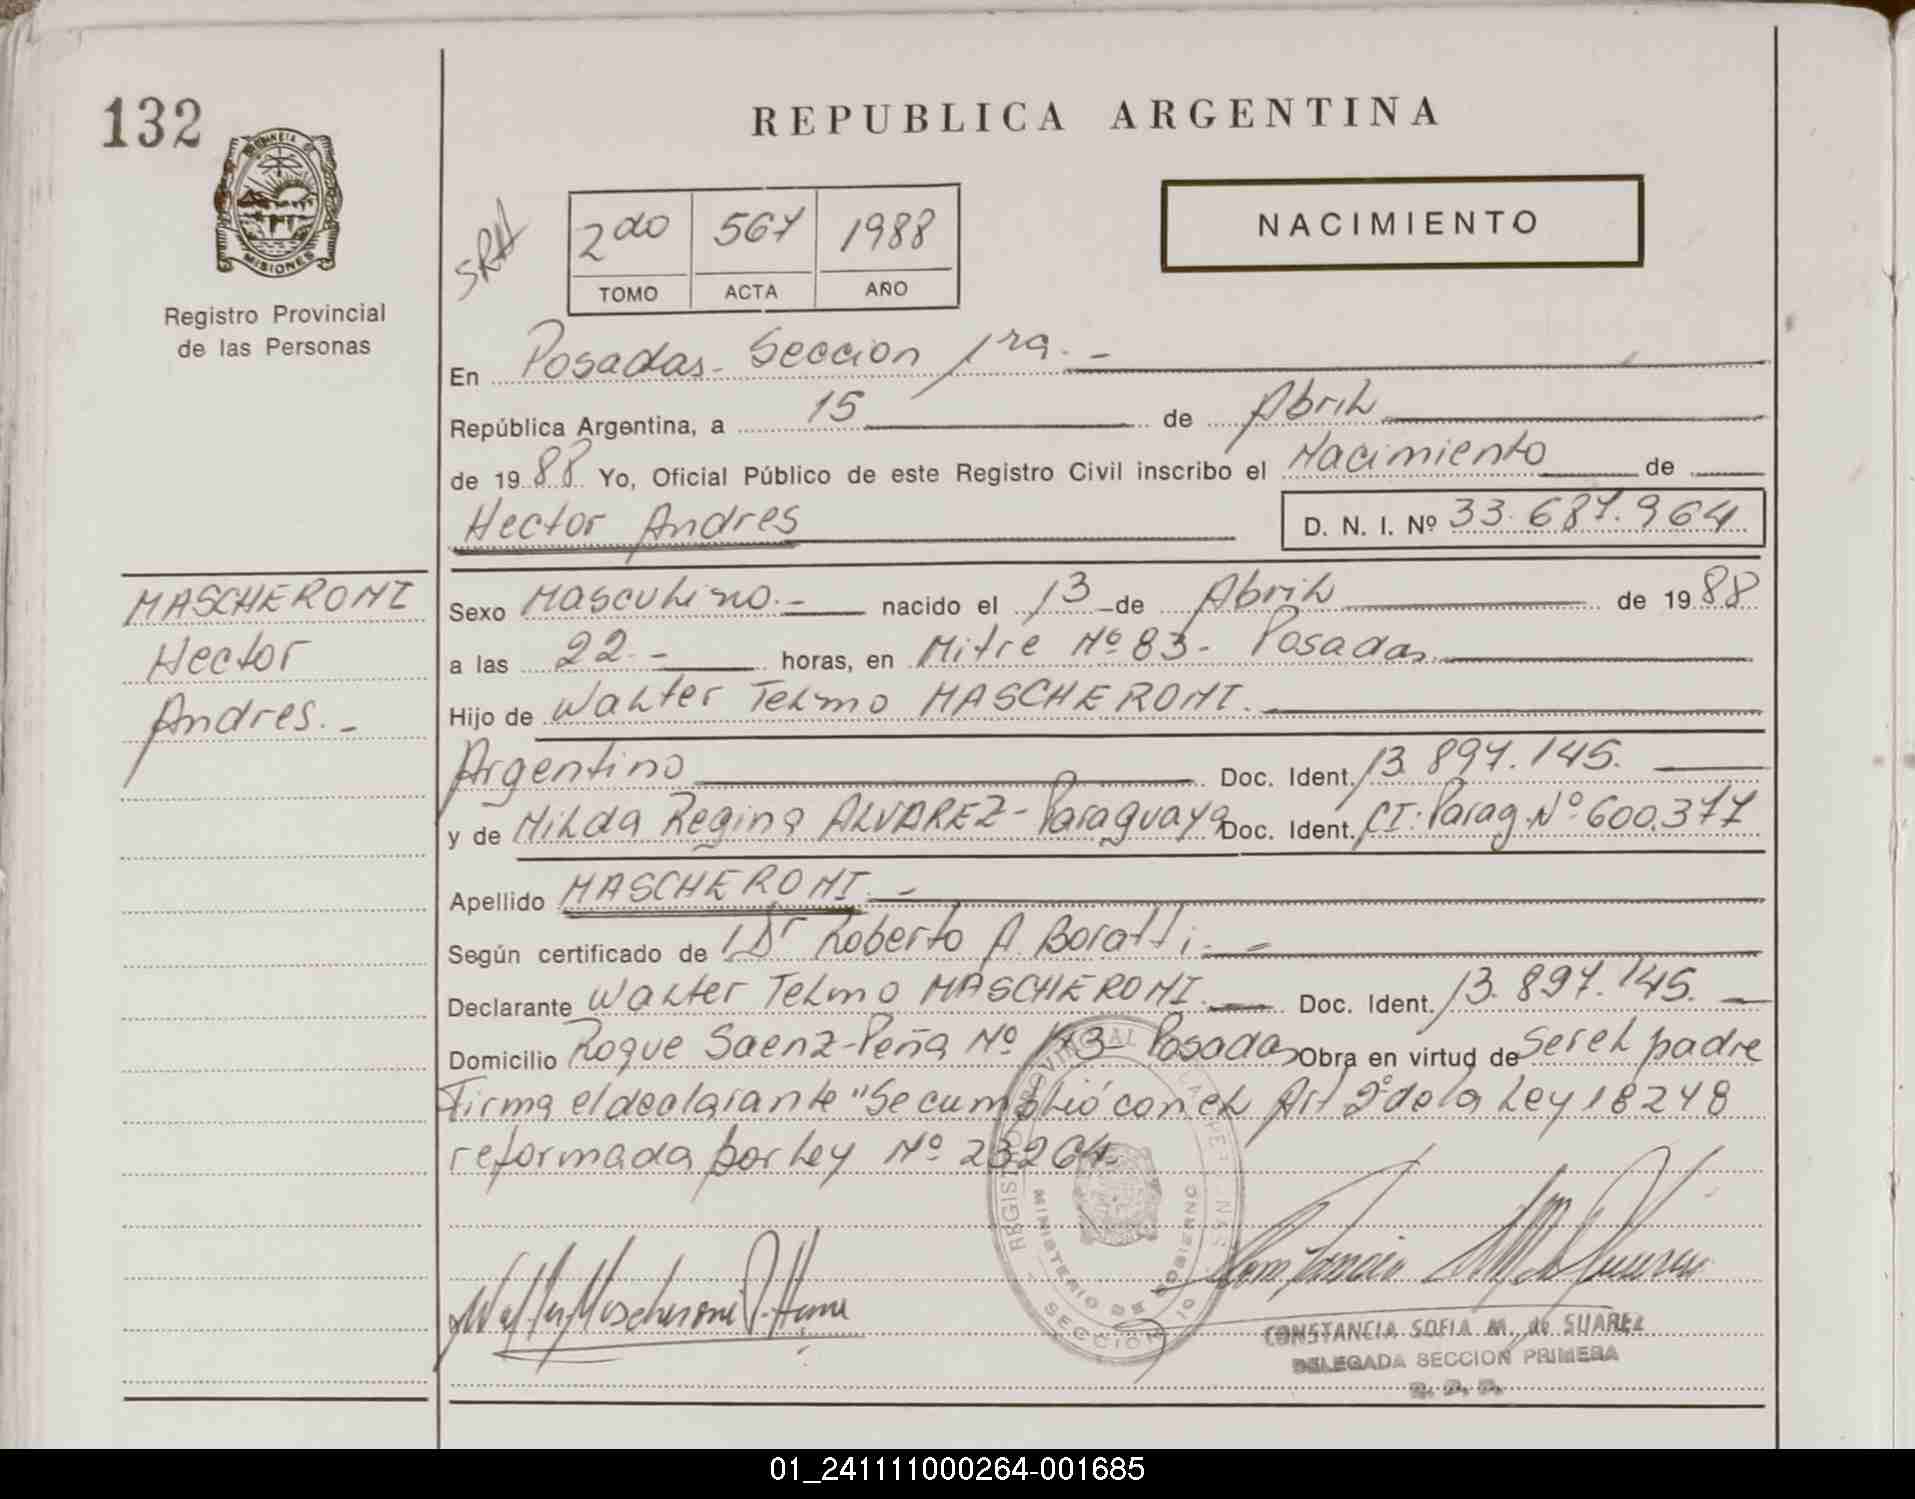 132
REPUBLICA ARGENTINA
PROVINCIA DE
MISIONES
Registro Provincial
de las Personas
SRA
2do 567 1988
TOMO ACTA AÑO
NACIMIENTO
En Posadas - Seccion 1ra. -
República Argentina, a 15 de Abril
de 1988 Yo, Oficial Público de este Registro Civil inscribo el Nacimiento de
Hector Andres D. N. I. Nº 33.687.964
MASCHERONI
Hector
Andres. -
Sexo Masculino. - nacido el 13 de Abril de 1988
a las 22. - horas, en Mitre Nº 83 - Posadas
Hijo de Walter Telmo MASCHERONI.
Argentino Doc. Ident. 13.897.145.
y de Nilda Regina ALVAREZ - Paraguaya Doc. Ident. CI. Parag. Nº 600.377
Apellido MASCHERONI. -
Según certificado de Dr Roberto A. Boratti. -
Declarante Walter Telmo MASCHERONI. Doc. Ident. 13.897.145. -
Domicilio Roque Saenz-Peña Nº Posadas Obra en virtud de ser el padre
Firma el declarante "Se cumplió con el Art 2º de la Ley 18248
reformada por Ley Nº 23264.
REGISTRO PROVINCIAL DE LAS PERSONAS
MINISTERIO DE GOBIERNO
SECCION
Walter Mascheroni
CONSTANCIA SOFIA M. de SUAREZ
DELEGADA SECCION PRIMERA
R. P. P.
01_241111000264-001685